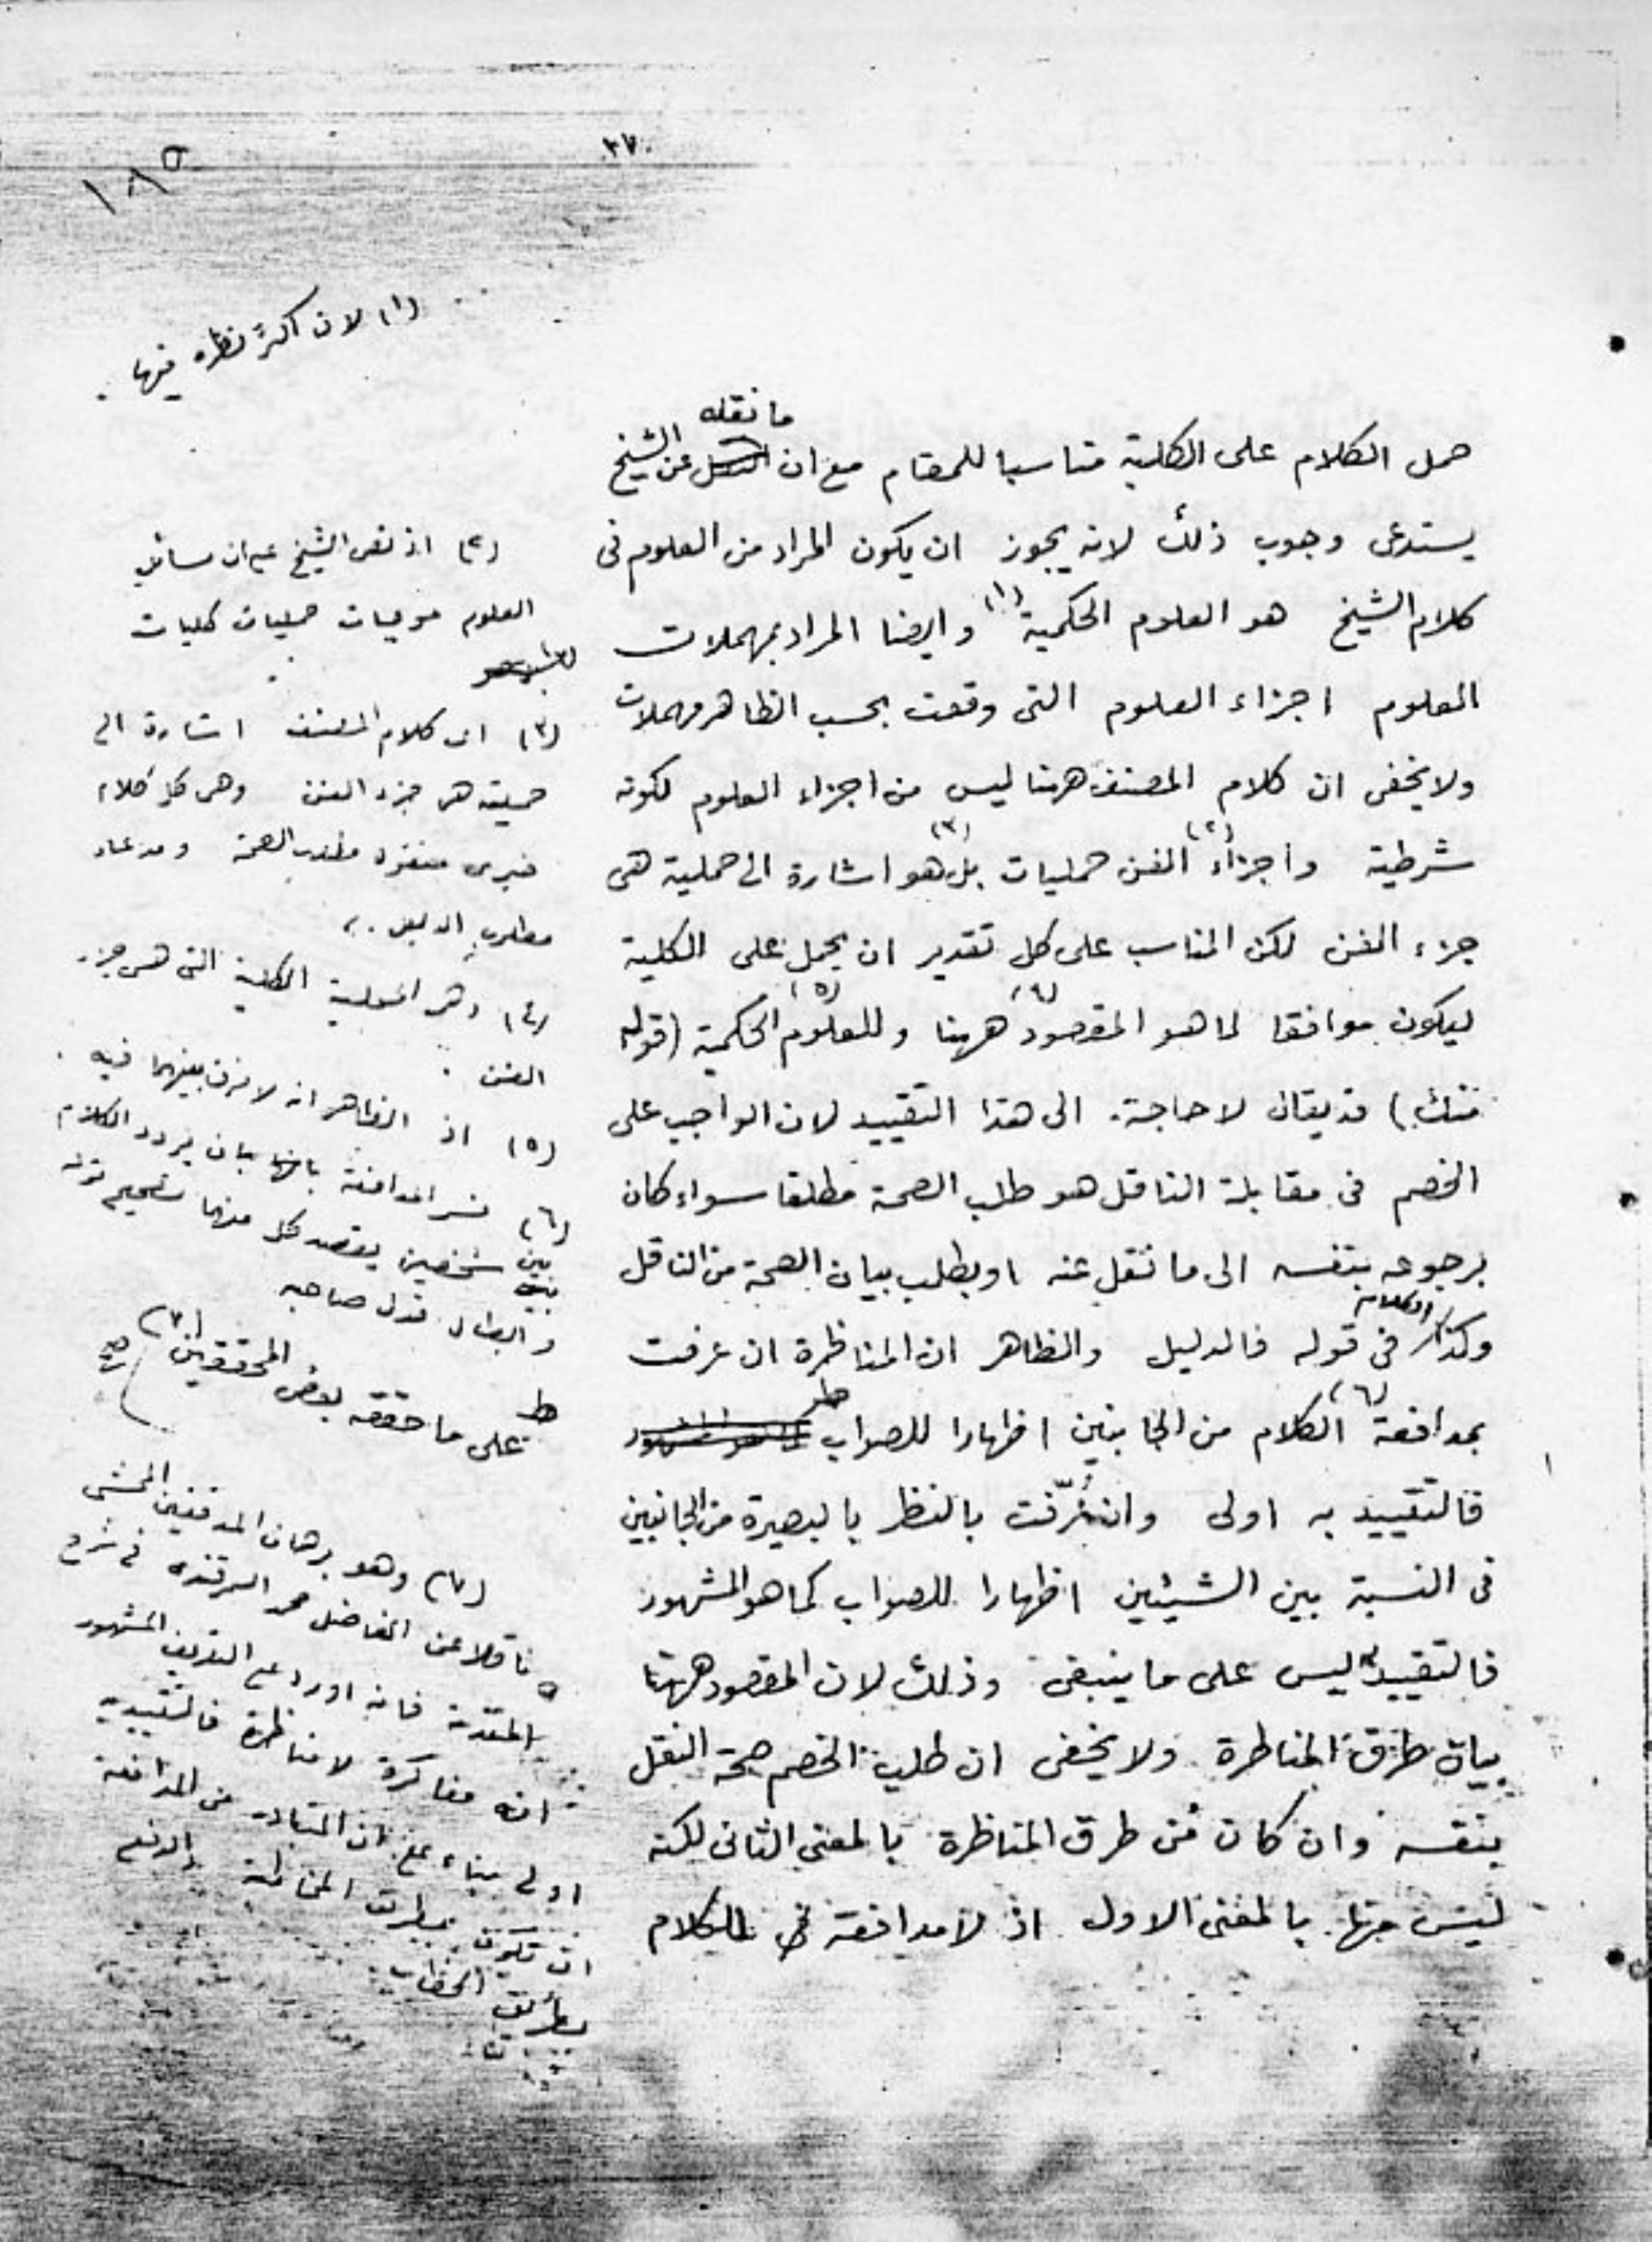 ٣٧
١٨٥
حمل الكلام على الكلية مناسبا للمقام مع ان ما نقله عن الشيخ
يستدعى وجوب ذلك لانه يجوز ان يكون المراد من العلوم فى
كلام الشيخ هو العلوم الحكمية (١) وايضا المراد بمهملات
العلوم اجزاء العلوم التى وقعت بحسب الظاهر مهملات
ولا يخفى ان كلام المصنف ههنا ليس من اجزاء العلوم لكونه
شرطية واجزاء (٢) الفن حمليات بل (٣) هو اشارة الى حملية هى
جزء الفن لكن المناسب على كل تقدير ان يحمل على الكلية
ليكون موافقا لما هو المقصود (٤) ههنا وللعلوم (٥) الحكمية (قوله
منك) قد يقال لا حاجة الى هذا التقييد لان الواجب على
الخصم فى مقابلة الناقل هو طلب الصحة مطلقا سواء كان
برجوعه بنفسه الى ما نقل عنه او بطلب بيان الصحة من الناقل
وكذا الكلام فى قوله فالدليل والظاهر ان المناظرة ان عرفت
بمدافعة (٦) الكلام من الجانبين اظهارا للصواب
فالتقييد به اولى وان عُرّفت بالنظر بالبصيرة من الجانبين
فى النسبة بين الشيئين اظهارا للصواب كما هو المشهور
فالتقييد ليس على ما ينبغى وذلك لان المقصود ههنا
بيان طرق المناظرة ولا يخفى ان طلب الخصم صحة النقل
بنفسه وان كان من طرق المناظرة بالمعنى الثانى لكنه
ليس منها بالمعنى الاول اذ لا مدافعة فى الكلام
(١) لان اكثر نظره فيها
(٢) اذ نص الشيخ على ان مسائل
العلوم موجبات حمليات كليات
(٣) اى كلام المصنف اشارة الى
حملية هى جزء الفن وهى كل كلام
خبرى منقول مطلوب الصحة ومدعاه
مطلوب الدليل
(٤) وهو الحملية الكلية التى هى جزء
الفن
(٥) اذ الظاهر انه لا فرق بينهما فيه
(٦) فسر المدافعة بانها بان يردد الكلام
بين شخصين يقصد كل منهما تصحيح قوله
وابطال قول صاحبه
على ما حققه بعض المحققين (٧) صح
(٧) وهو برهان المدققين المحشى
ناقلا عن الفاضل محمد السمرقندى فى شرح
المقدمة فانه اورد على التعريف المشهور
انه مفاكرة لا مناظرة فالتقييد به
اولى بناء على ان المتبادر من المدافعة
ان تكون بطريق المخاطبة والدفع
بطريق الخطاب